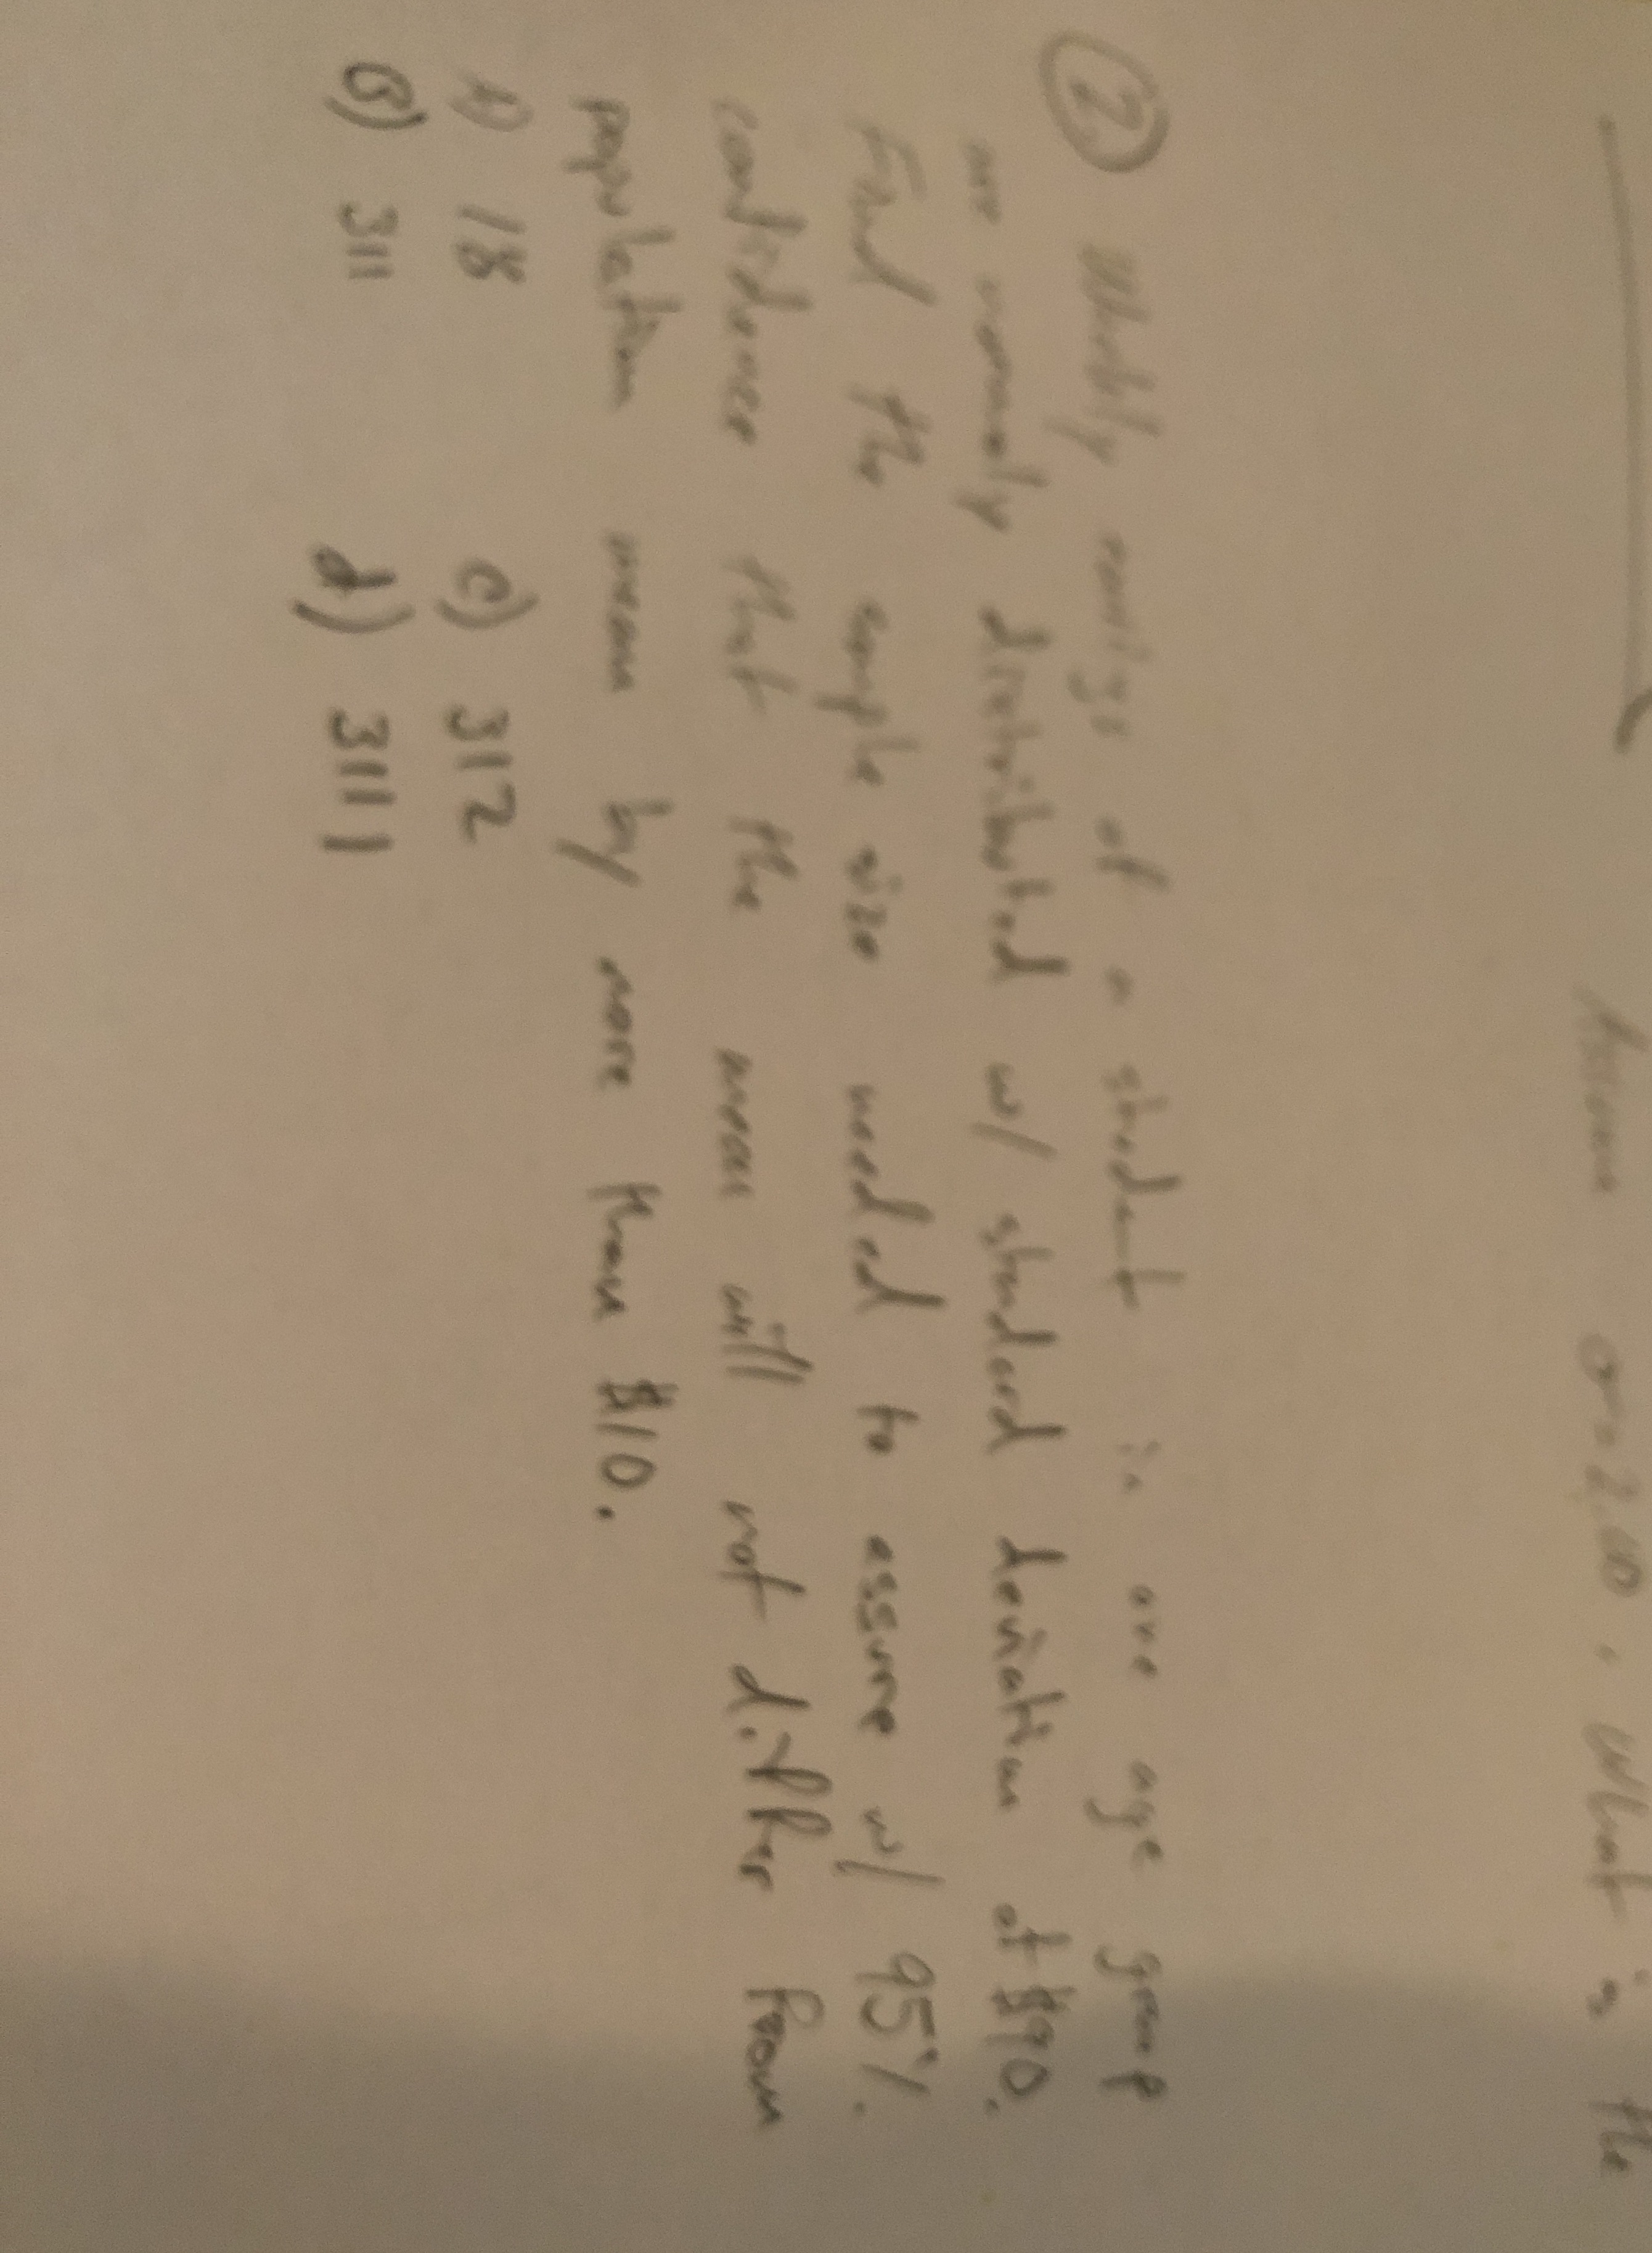 Assume σ=2.10, What is the
② Weekly earnings of a student in one age group
are normally distributed w/ standard deviation of $90.
Find the sample size needed to assure w/ 95%.
confidence that the mean will not differ from
population mean by more than $10.
A) 18 c) 312
B) 311 d) 3111